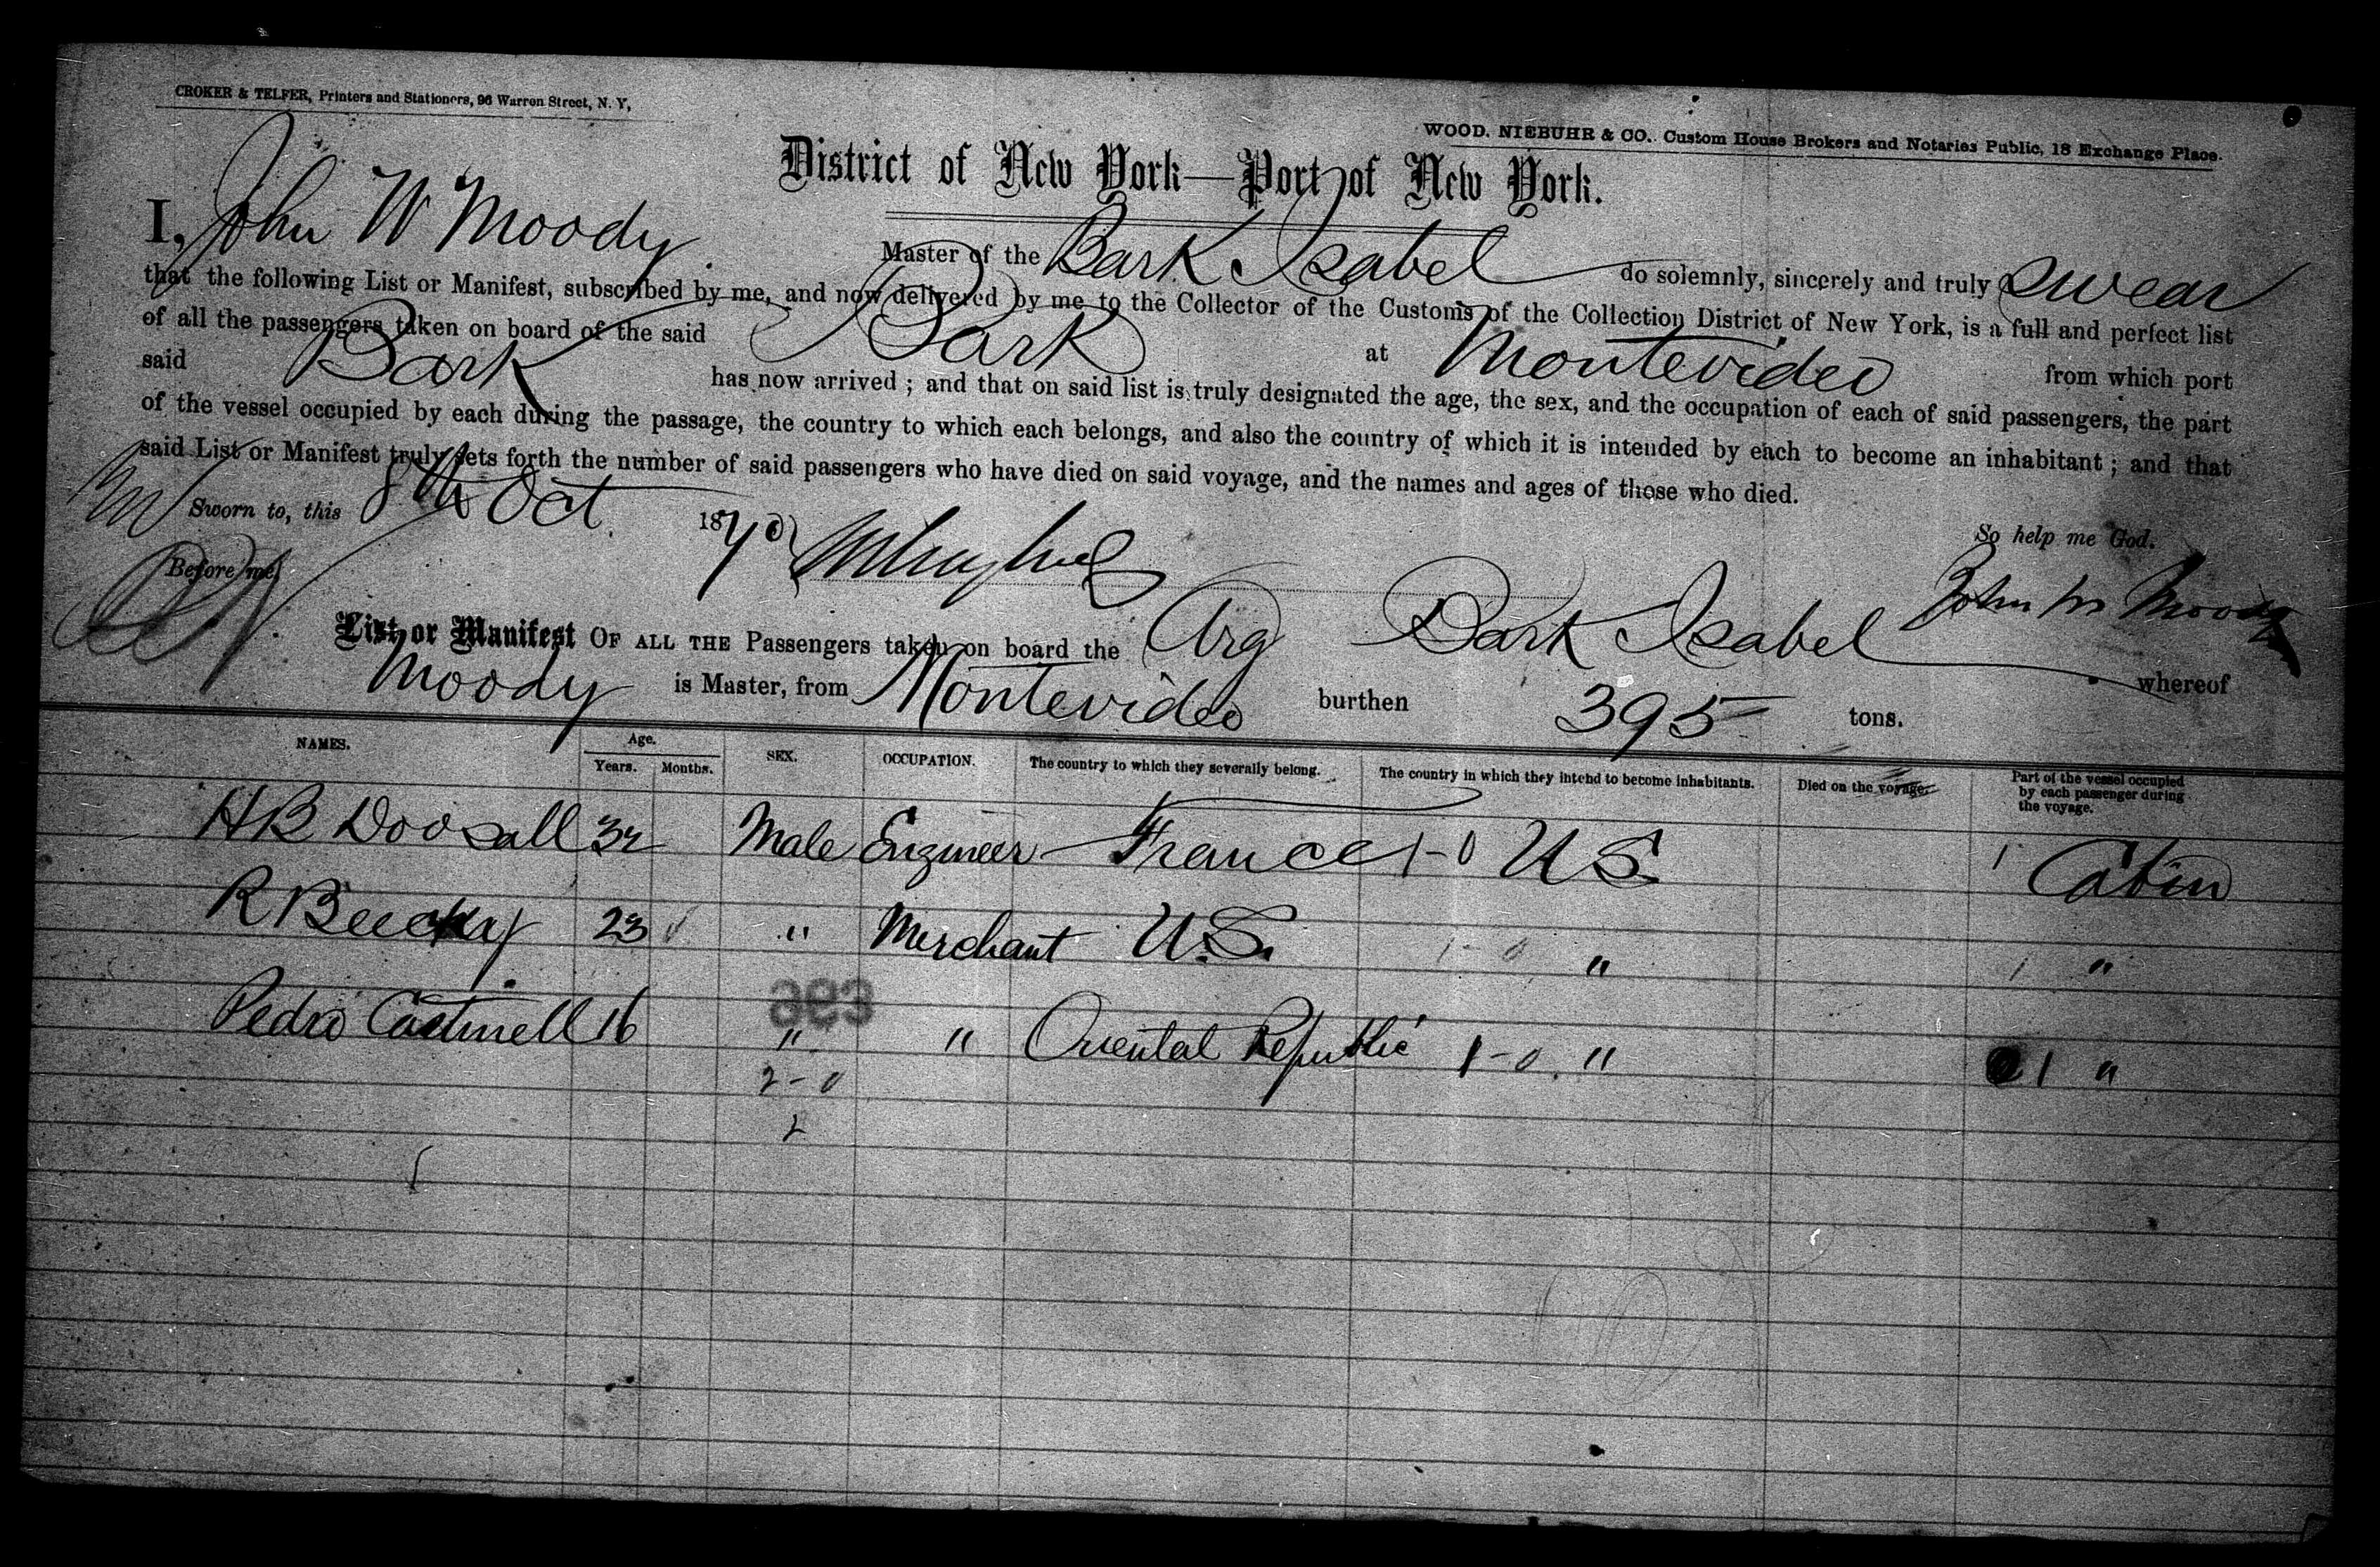 CROKER & TELFER, Printers and Stationers, 96 Warren Street, N. Y,
WOOD, NIEBUHR & CO., Custom House Brokers and Notaries Public, 18 Exchange Place.
District of New York—Port of New York.
I, John W Moody Master of the Bark Isabel do solemnly, sincerely and truly swear
that the following List or Manifest, subscribed by me, and now delivered by me to the Collector of the Customs of the Collection District of New York, is a full and perfect list
of all the passengers taken on board of the said Bark at Montevideo from which port
said Bark has now arrived ; and that on said list is truly designated the age, the sex, and the occupation of each of said passengers, the part
of the vessel occupied by each during the passage, the country to which each belongs, and also the country of which it is intended by each to become an inhabitant ; and that
said List or Manifest truly sets forth the number of said passengers who have died on said voyage, and the names and ages of those who died.
Sworn to, this 8th Oct 1870
So help me God.
Before me,
John W Moody
List or Manifest OF ALL THE Passengers taken on board the Arg Bark Isabel whereof
Moody is Master, from Montevideo burthen 395 tons.
NAMES. Age. Years. Months. SEX. OCCUPATION. The country to which they severally belong. The country in which they intend to become inhabitants. Died on the voyage. Part of the vessel occupied by each passenger during the voyage.
H B 32 Male Engineer France 1-0 U S 1 Cabin
R 23 " Merchant U.S. 1-0 " 1 "
Pedro 16 " " Oriental Republic 1-0 " 1 "
2-0
2